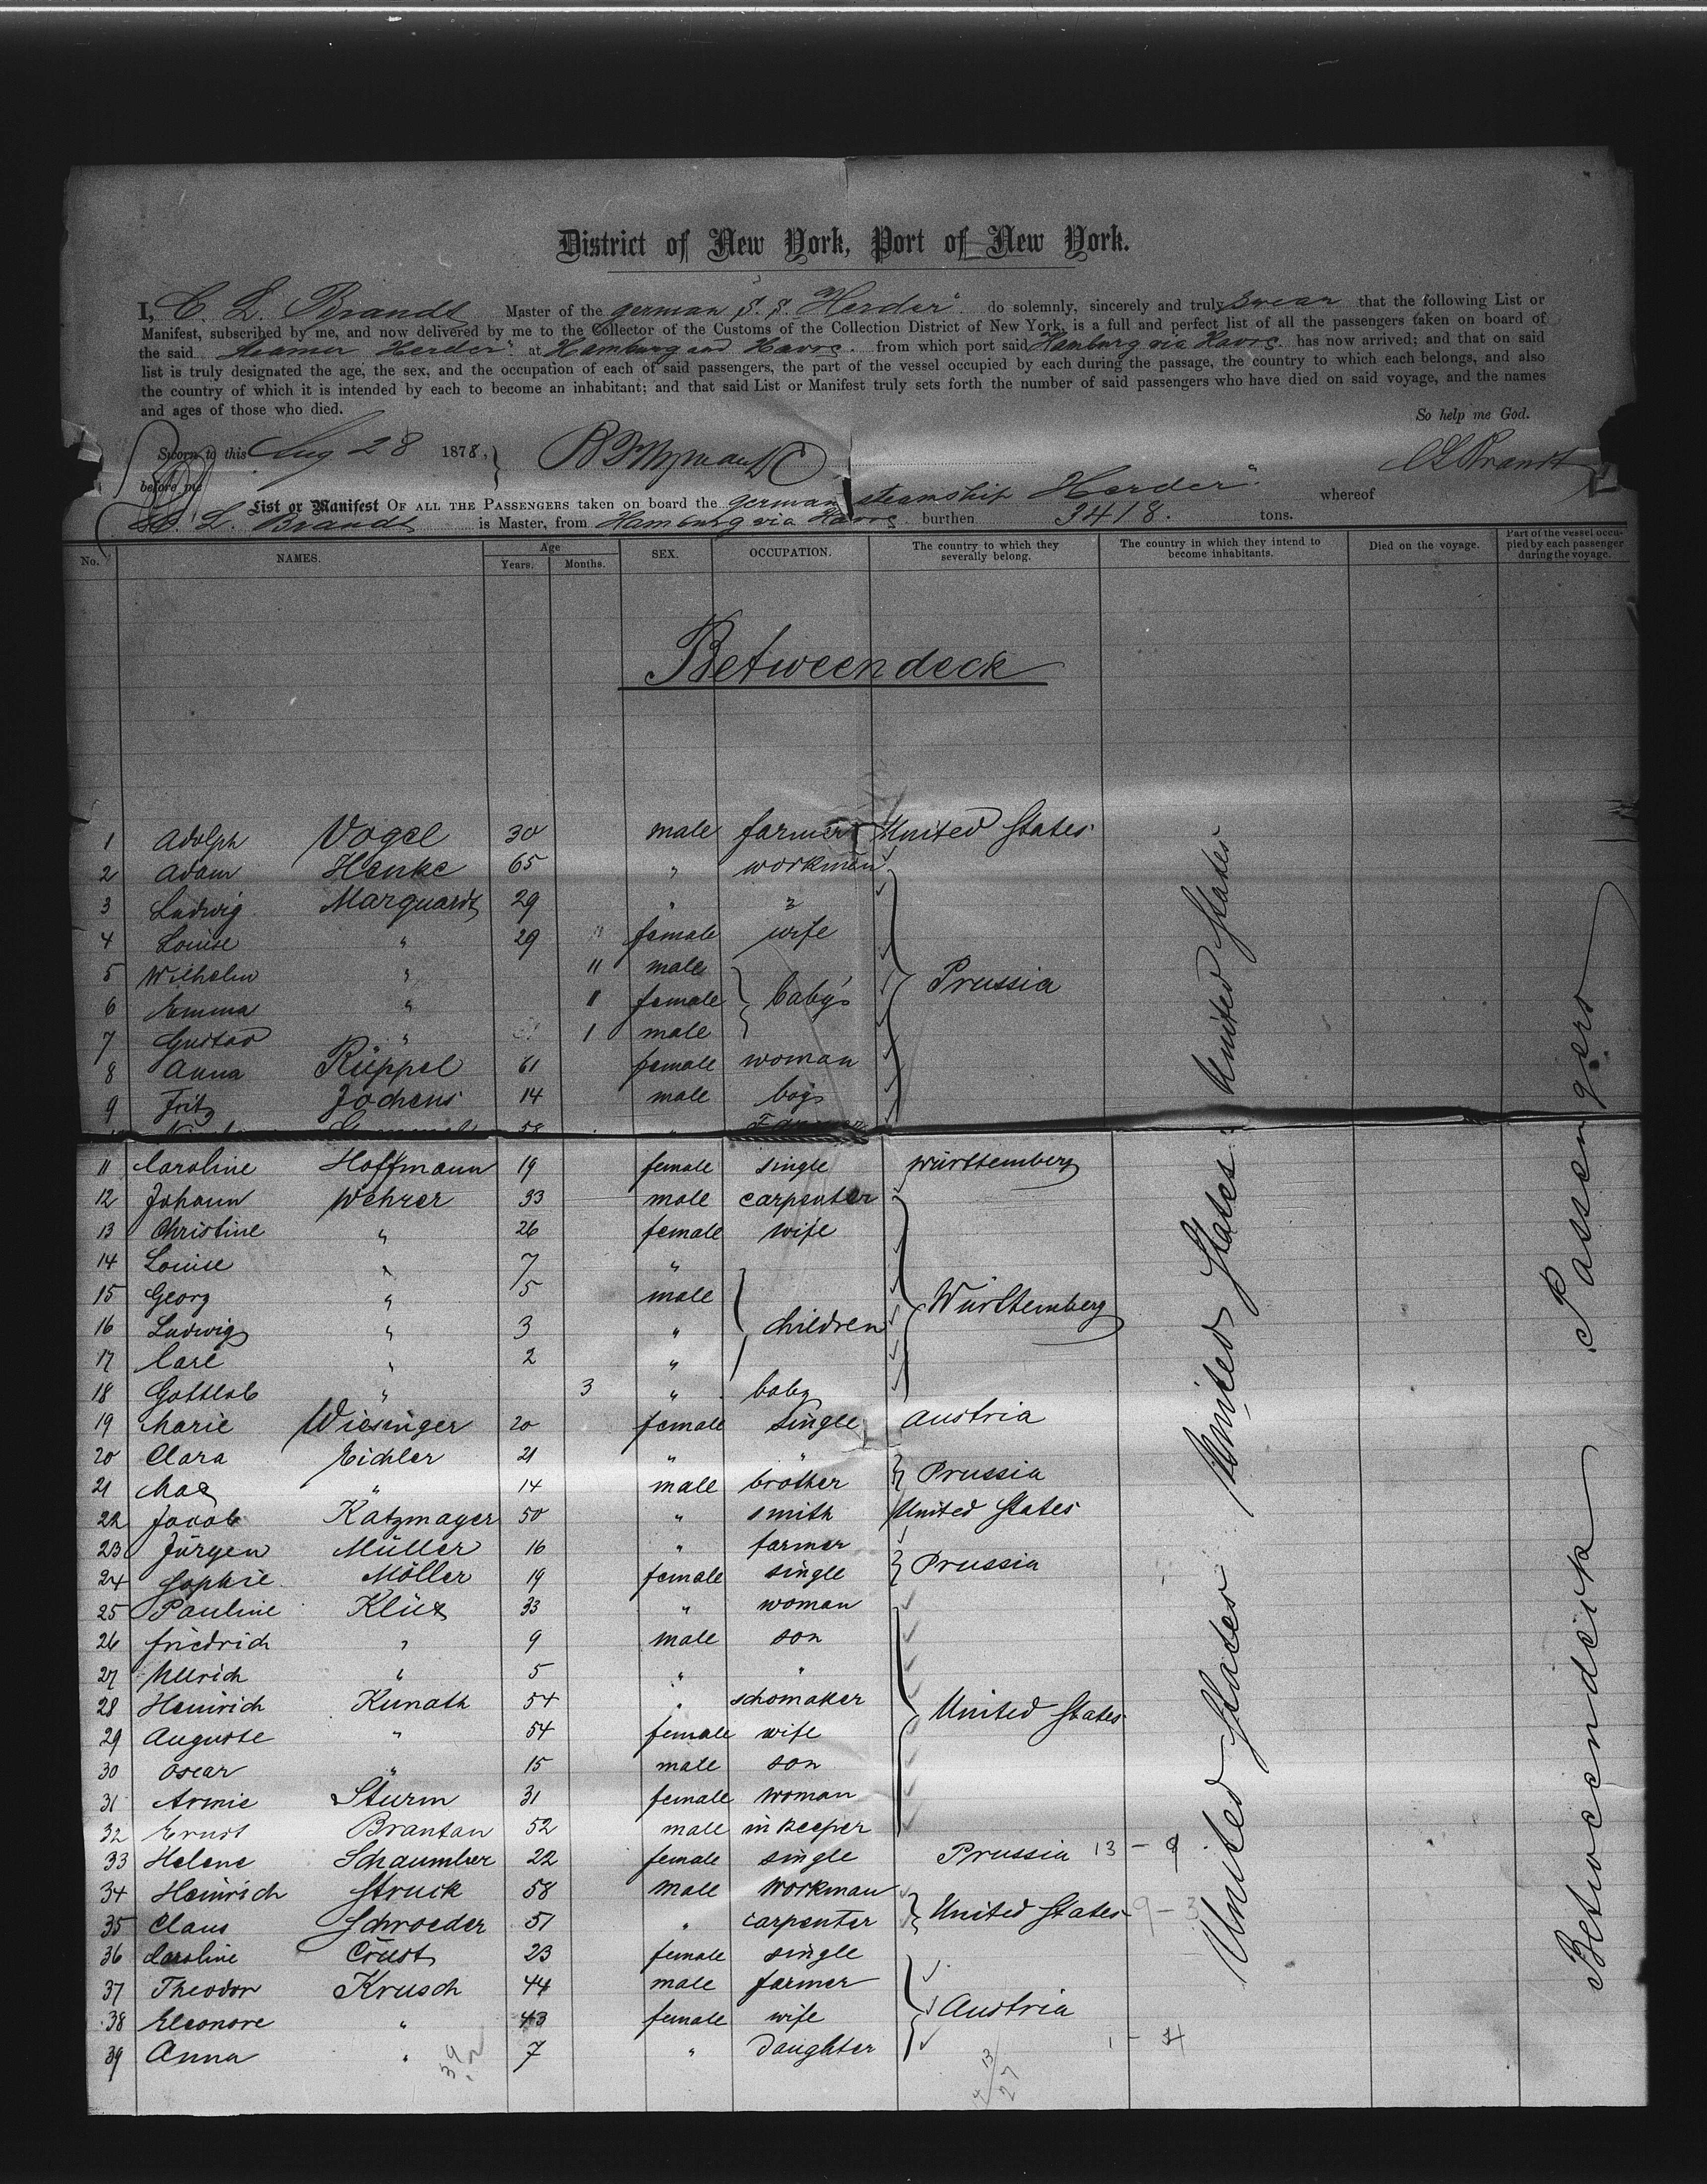 District of New York, Port of New York.
I, C. L. Brandt Master of the german S. S. "Herder" do solemnly, sincerely and truly swear that the following List or
Manifest, subscribed by me, and now delivered by me to the Collector of the Customs of the Collection District of New York, is a full and perfect list of all the passengers taken on board of
the said steamer Herder" at Hamburg and Havre. from which port said Hamburg via Havre. has now arrived; and that on said
list is truly designated the age, the sex, and the occupation of each of said passengers, the part of the vessel occupied by each during the passage, the country to which each belongs, and also
the country of which it is intended by each to become an inhabitant; and that said List or Manifest truly sets forth the number of said passengers who have died on said voyage, and the names
and ages of those who died. So help me God.
Sworn to this Aug 28 1878,
before me
CL Brandt
List or Manifest OF ALL THE PASSENGERS taken on board the german steamship Herder" whereof
C. L. Brandt is Master, from Hamburg via Havre burthen 3418. tons.
No. NAMES. Age Years. Months. SEX. OCCUPATION. The country to which they severally belong. The country in which they intend to become inhabitants. Died on the voyage. Part of the vessel occupied by each passenger during the voyage.
Betweendeck
1 Adolph Vogel 30 male farmer United States
2 Adam Henke 65 " workman
3 Ludwig Marquardt 29 " "
4 Louise " 29 female wife
5 Wilhelm " 11 male
6 Emma " 11 female baby's Prussia
7 Gustav " 1 male
8 Anna Rüppel 61 female woman
9 Fritz Jochens 14 male boy
58 "
11 Caroline Hoffmann 19 female single Württemberg
12 Johann Wehrer 33 male carpenter
13 Christine " 26 female wife
14 Louise " 7 "
15 Georg " 5 male
16 Ludwig " 3 " children Württemberg
17 Carl " 2 "
18 Gottlob " 3 " baby
19 Marie Wiesinger 20 female single Austria
20 Clara Eichler 21 " "
21 Max " 14 male brother Prussia
22 Jacob Katzmayer 50 " smith United States
23 Jürgen Müller 16 " farmer
24 Sophie Möller 19 female single Prussia
25 Pauline Klüx 33 " woman
26 friedrich " 9 male son
27 Ullrich " 5 " "
28 Heinrich Kunath 54 " schomaker United States
29 Auguste " 54 female wife
30 Oscar " 15 male son
31 Annie Sturm 31 female woman
32 Ernst Brantan 52 male in keeper
33 Helene Schaumber 22 female single Prussia 13 - 9
34 Heinrich Struck 58 male workman
35 Claus Schroeder 51 " carpenter United States 9 - 3
36 Caroline 23 female single
37 Theodor Krusch 44 male farmer
38 Eleonore " 43 female wife Austria
39 Anna " 7 " daughter 1 - 4
United States United States United States
Betweendeck Passengers